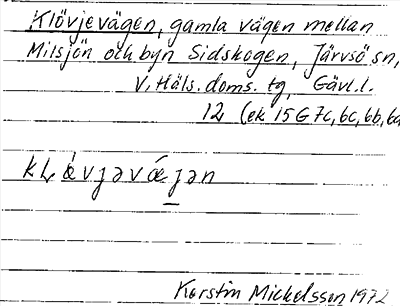 Klövjevägen, gamla vägen mellan
Milsjön och byn Sidskogen, Järvsö sn,
V. Häls. doms. tg, Gävl. l.
12 (ek 15 G 7c, 6c, 6b, 6a
Kerstin Mickelsson 1972